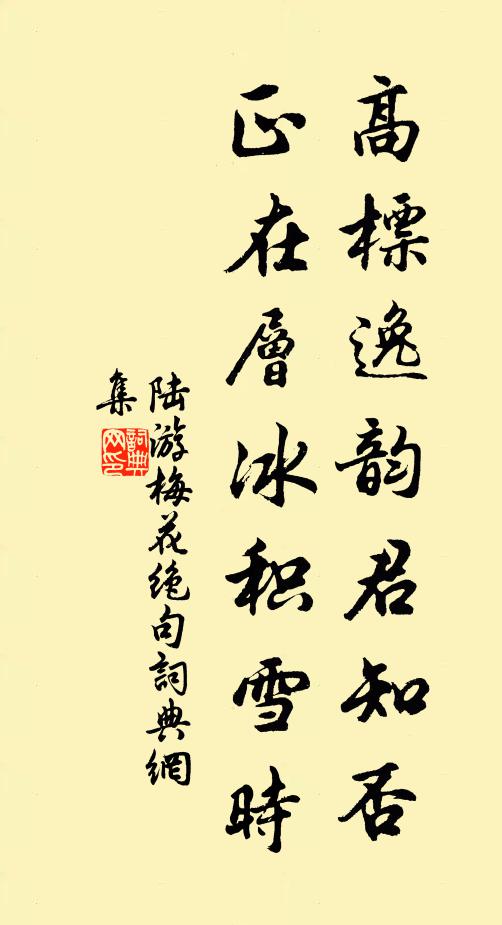 高標逸韵君知否
正在層冰积雪時
陆游梅花绝句詞典網
集
詞典网印